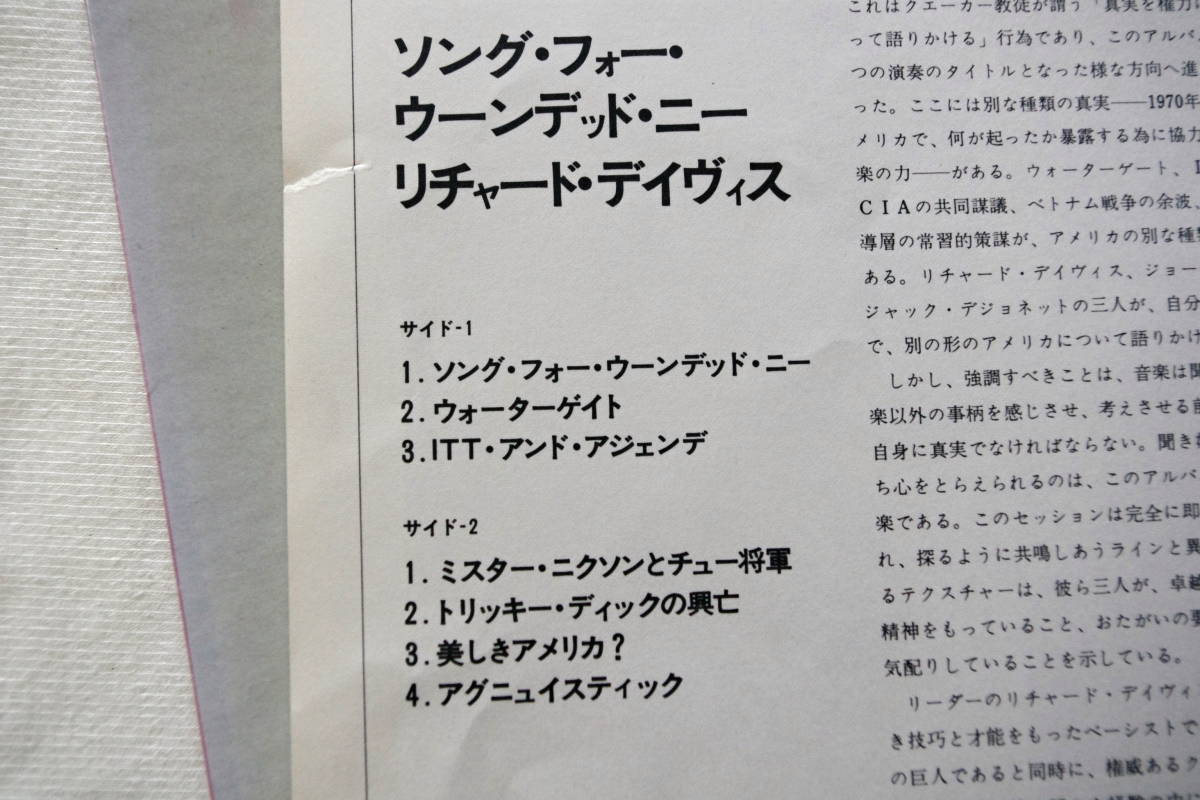 ソング・フォー・
ウーンデッド・ニー
リチャード・デイヴィス
サイド-1
1. ソング・フォー・ウーンデッド・ニー
2. ウォーターゲイト
3. ITT・アンド・アジェンデ
サイド-2
1. ミスター・ニクソンとチュー将軍
2. トリッキー・ディックの興亡
3. 美しきアメリカ?
4. アグニュイスティック
これはクエーカー教徒が謂う「真実を権力に
って語りかける」行為であり、このアルバ
つの演奏のタイトルとなった様な方向へ進
った。ここには別な種類の真実——1970年
メリカで、何が起ったか暴露する為に協力
楽の力——がある。ウォーターゲート、
CIAの共同謀議、ベトナム戦争の余波、
導層の常習的策謀が、アメリカの別な種
ある。リチャード・デイヴィス、ジョー
ジャック・デジョネットの三人が、自分
で、別の形のアメリカについて語りかけ
しかし、強調すべきことは、音楽は聞
楽以外の事柄を感じさせ、考えさせる前
自身に真実でなければならない。聞き
ち心をとらえられるのは、このアルバ
楽である。このセッションは完全に即
れ、探るように共鳴しあうラインと異
るテクスチャーは、彼ら三人が、卓越
精神をもっていること、おたがいの要
気配りしていることを示している。
リーダーのリチャード・デイヴィ
き技巧と才能をもったベーシストで
の巨人であると同時に、権威あるク